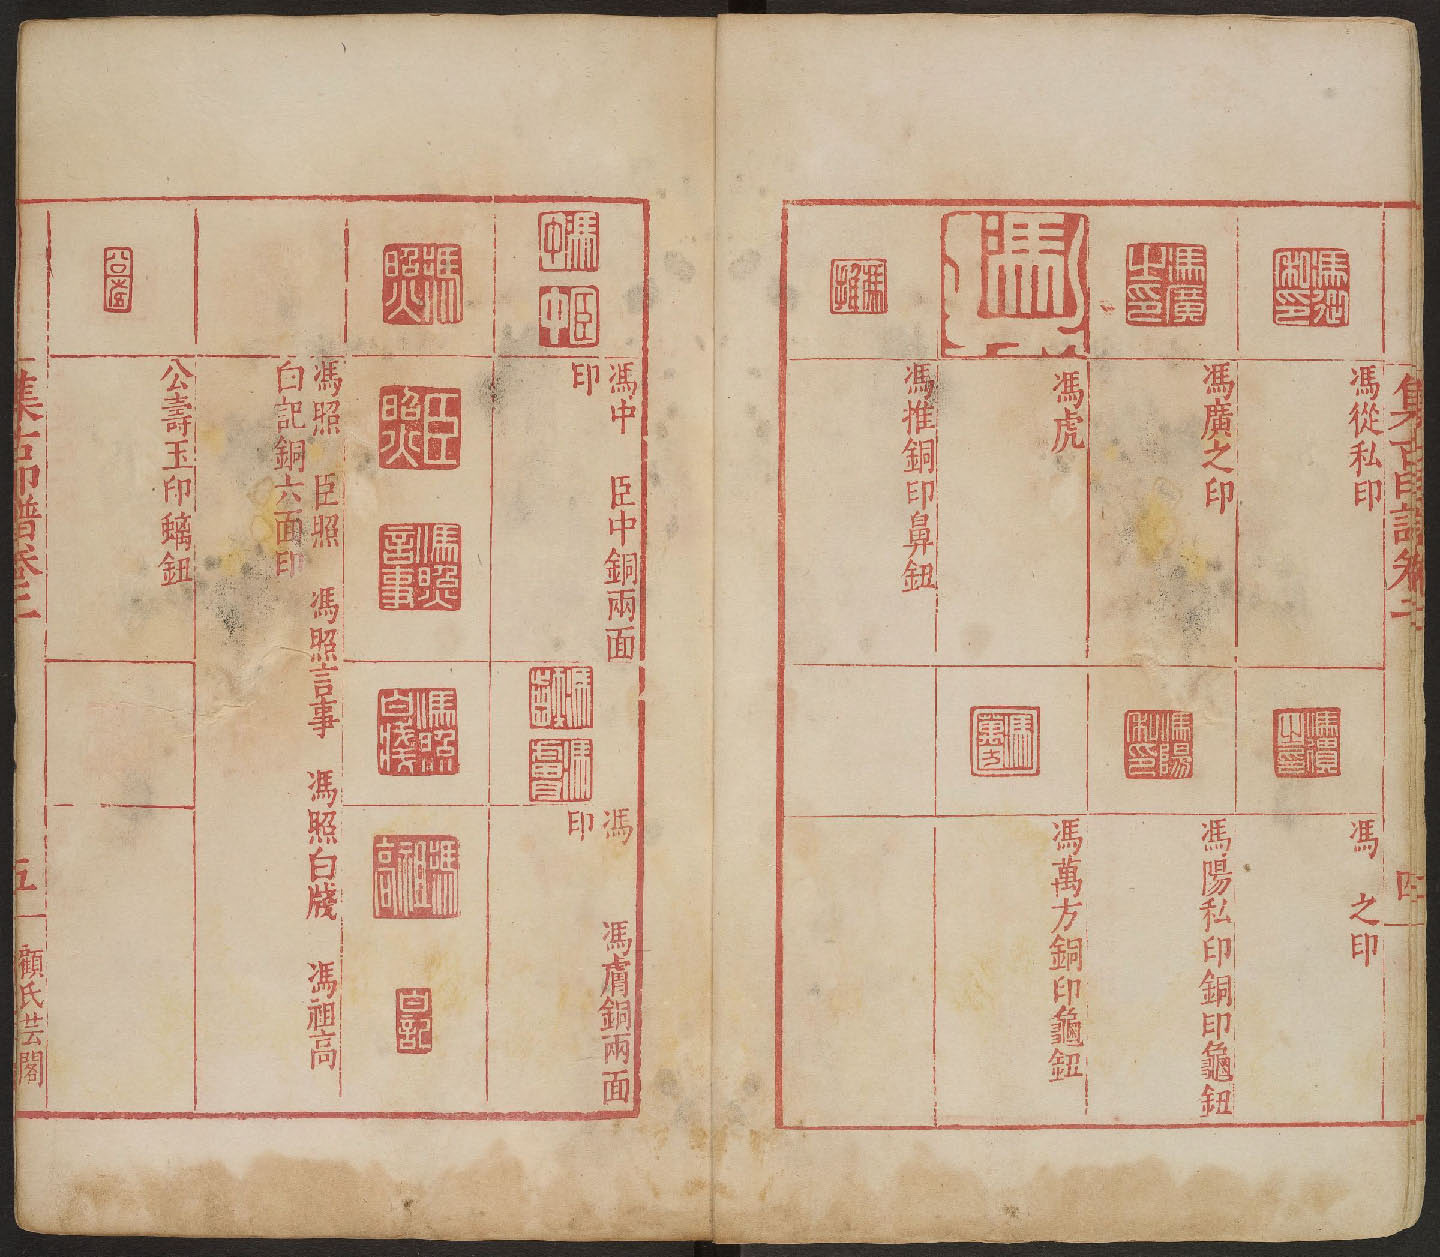 集古印譜卷二
四
馮從私印
馮廣之印
馮虎
馮推銅印鼻鈕
馮 之印
馮陽私印銅印龜鈕
馮萬方銅印龜鈕
馮中 臣中銅兩面
印
馮 馮膚銅兩面
印
馮照 臣照 馮照言事 馮照白牋 馮祖高
白記銅六面印
公壽玉印螭鈕
集古印譜卷二
五
顧氏芸閣